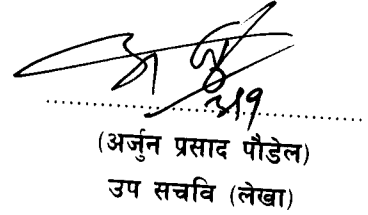 (अर्जुन प्रसाद पौडेल)
उप सचवि (लेखा)